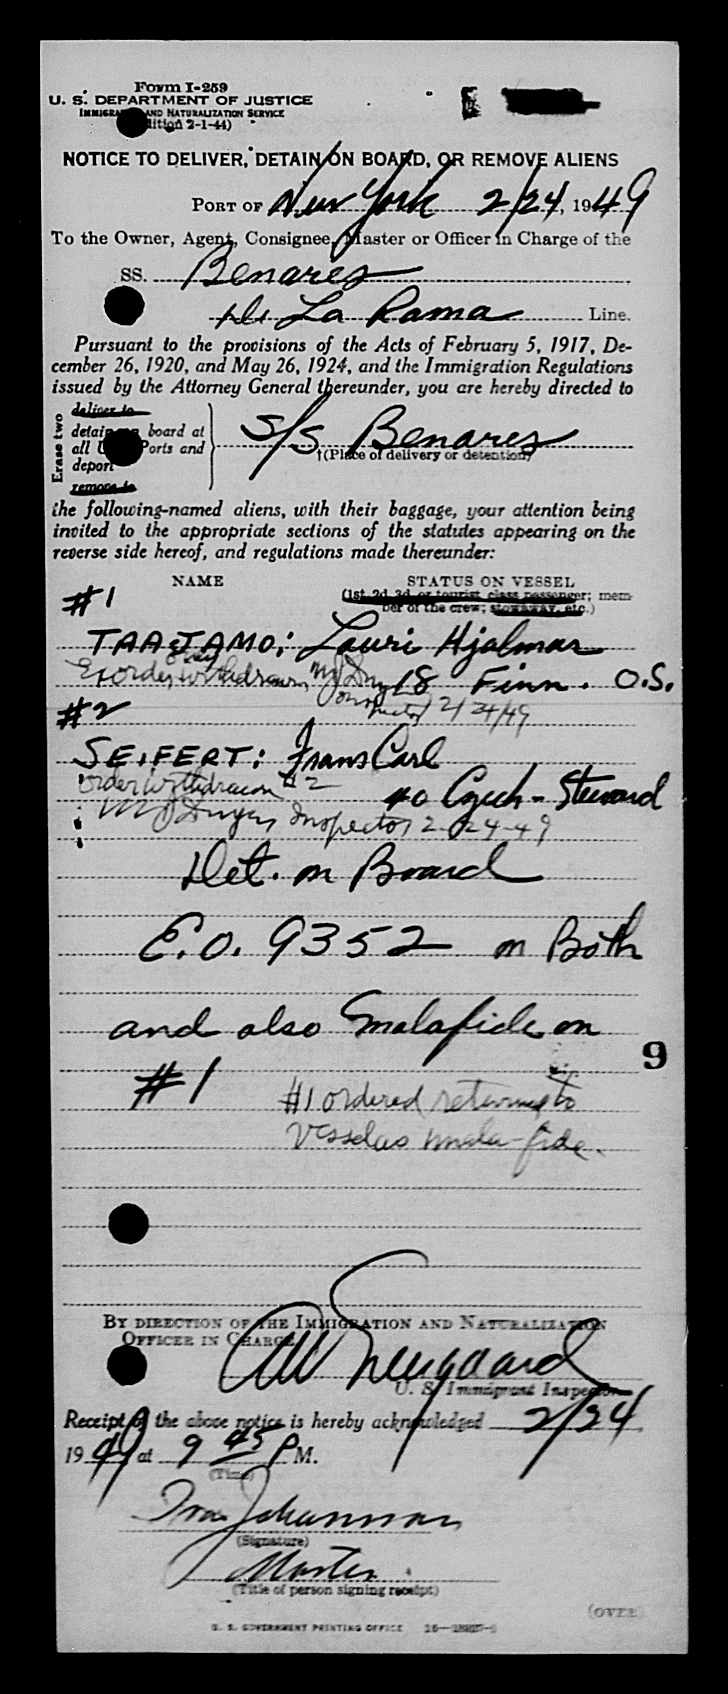 Form I-259
U. S. DEPARTMENT OF JUSTICE
IMMIGRATION AND NATURALIZATION SERVICE
(Edition 2-1-44)
NOTICE TO DELIVER, DETAIN ON BOARD, OR REMOVE ALIENS
PORT OF New York 2/24, 1949
To the Owner, Agent, Consignee, Master or Officer in Charge of the
SS. Benares
De La Rama Line.
Pursuant to the provisions of the Acts of February 5, 1917, De-
cember 26, 1920, and May 26, 1924, and the Immigration Regulations
issued by the Attorney General thereunder, you are hereby directed to
Erase two
deliver to
detain on board at
all U.S. Ports and
deport
remove to
S/S Benares
†(Place of delivery or detention)
the following-named aliens, with their baggage, your attention being
invited to the appropriate sections of the statutes appearing on the
reverse side hereof, and regulations made thereunder:
NAME STATUS ON VESSEL
(1st, 2d, 3d, or tourist class passenger; mem-
ber of the crew; stowaway, etc.)
#1
TAAJAMO: Lauri Hjalmar
order withdrawn
18 Finn. O.S.
Inspector 2/24/49
#2
SEIFERT: Frans Carl
order withdrawn #2
40 Czech - Steward
Inspector 2-24-49
Det. on Board
E.O. 9352 on Both
and also malafide on
9
#1
#1 ordered returned to
vessel as mala-fide.
BY DIRECTION OF THE IMMIGRATION AND NATURALIZATION
OFFICER IN CHARGE
U. S. Immigrant Inspector
Receipt of the above notice is hereby acknowledged 2/24
1949 at 9 45 P M.
(Time)
(Signature)
Master
(Title of person signing receipt)
(OVER)
U. S. GOVERNMENT PRINTING OFFICE